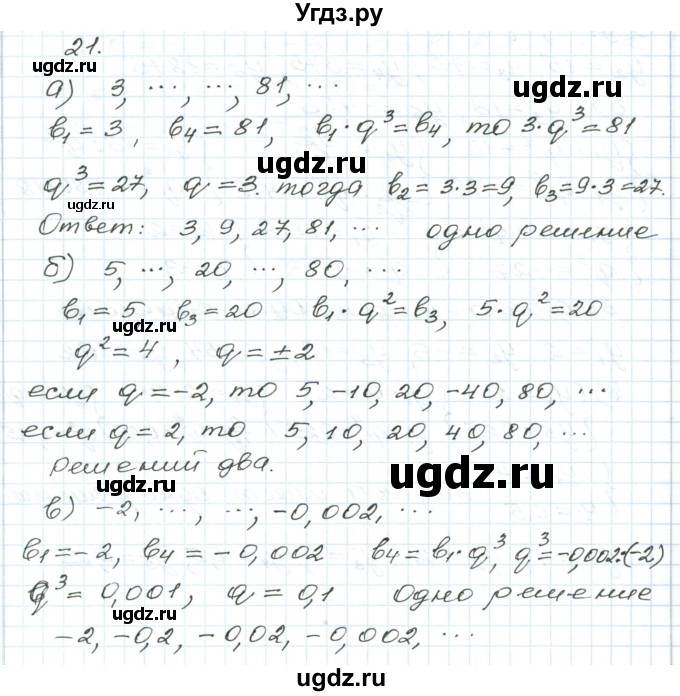 Угдз.ру
21.
ugdz.ru ugdz.ru
а) 3, ..., ..., 81, ...
b₁ = 3, b₄ = 81, b₁ · q³ = b₄, то 3 · q³ = 81
ugdz.ru
q³ = 27, q = 3. тогда b₂ = 3·3 = 9, b₃ = 9·3 = 27.
ugdz.ru
Ответ: 3, 9, 27, 81, ... одно решение
б) 5, ..., 20, ..., 80, ...
ugdz.ru
b₁ = 5 b₃ = 20 b₁ · q² = b₃, 5 · q² = 20
ugdz.ru
q² = 4, q = ±2
если q = -2, то 5, -10, 20, -40, 80, ...
если q = 2, то 5, 10, 20, 40, 80, ...
ugdz.ru
решений два.
ugdz.ru
в) -2, ..., ..., -0,002, ...
b₁ = -2, b₄ = -0,002 b₄ = b₁ · q³, q³ = -0,002:(-2)
q³ = 0,001, q = 0,1 Одно решение
ugdz.ru
-2, -0,2, -0,02, -0,002, ...
ugdz.ru